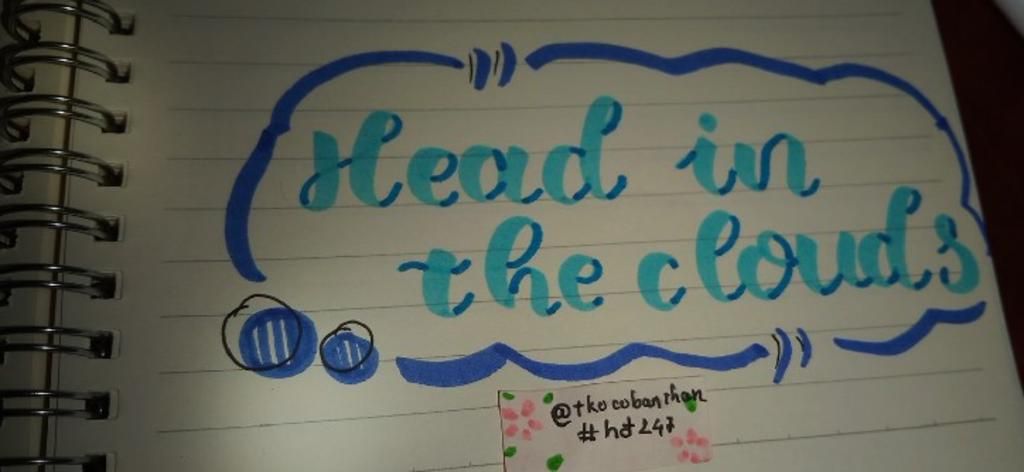 Head in
the clouds
@tkocobanshan
#hd247